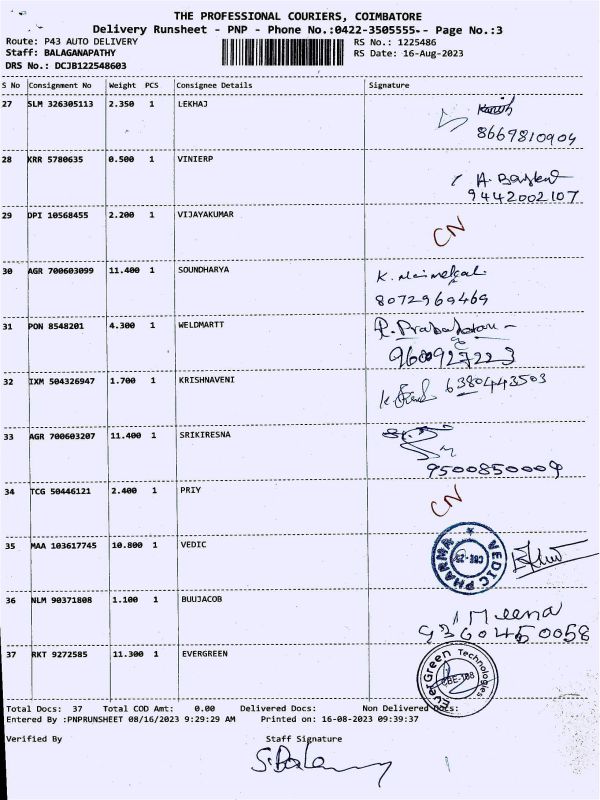 THE PROFESSIONAL COURIERS, COIMBATORE
Delivery Runsheet - PNP - Phone No.:0422-3505555-- Page No.:3
Route: P43 AUTO DELIVERY RS No.: 1225486
Staff: BALAGANAPATHY RS Date: 16-Aug-2023
DRS No.: DCJB122548603
S No Consignment No Weight PCS Consignee Details Signature
27 SLM 326305113 2.350 1 LEKHAJ
8669810904
28 KRR 5780635 0.500 1 VINIERP
9442002107
29 OPI 10568455 2.200 1 VIJAYAKUMAR CN
30 AGR 700603099 11.400 1 SOUNDHARYA
8072969469
31 PON 8548201 4.300 1 WELDMARTT
9600927223
32 IXM 504326947 1.700 1 KRISHNAVENI 6380443503
33 AGR 700603207 11.400 1 SRIKIRESNA
9500850009
34 TCG 50446121 2.400 1 PRIY CN
35 MAA 103617745 10.800 1 VEDIC VEDIC PHARMA
36 NLM 90371808 1.100 1 BUUJACOB Meena
9360450058
37 RKT 9272585 11.300 1 EVERGREEN EverGreen Technologies
Total Docs: 37 Total COD Amt: 0.00 Delivered Docs: Non Delivered Docs:
Entered By :PNPRUNSHEET 08/16/2023 9:29:29 AM Printed on: 16-08-2023 09:39:37
Verified By Staff Signature